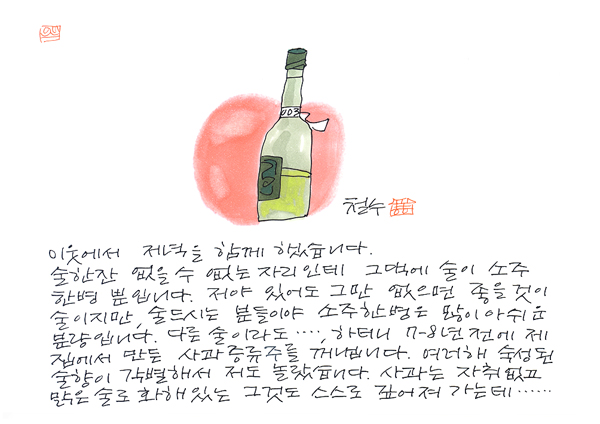 003
철수
이웃에서 저녁을 함께 했습니다.
술한잔 없을 수 없는 자리인데 그댁에 술이 소주
한병 뿐입니다. 저야 있어도 그만 없으면 좋을것이
술이지만, 술드시는 분들이야 소주한병은 많이 아쉬운
분량입니다. 다른 술이라도 ····, 하더니 7-8년전에 제
집에서 만든 사과증류주를 꺼냅니다. 여러해 숙성된
술향이 각별해서 저도 놀랐습니다. 사과는 자취없고
맑은 술로 화해있는 그것도 스스로 깊어져 가는데 ······